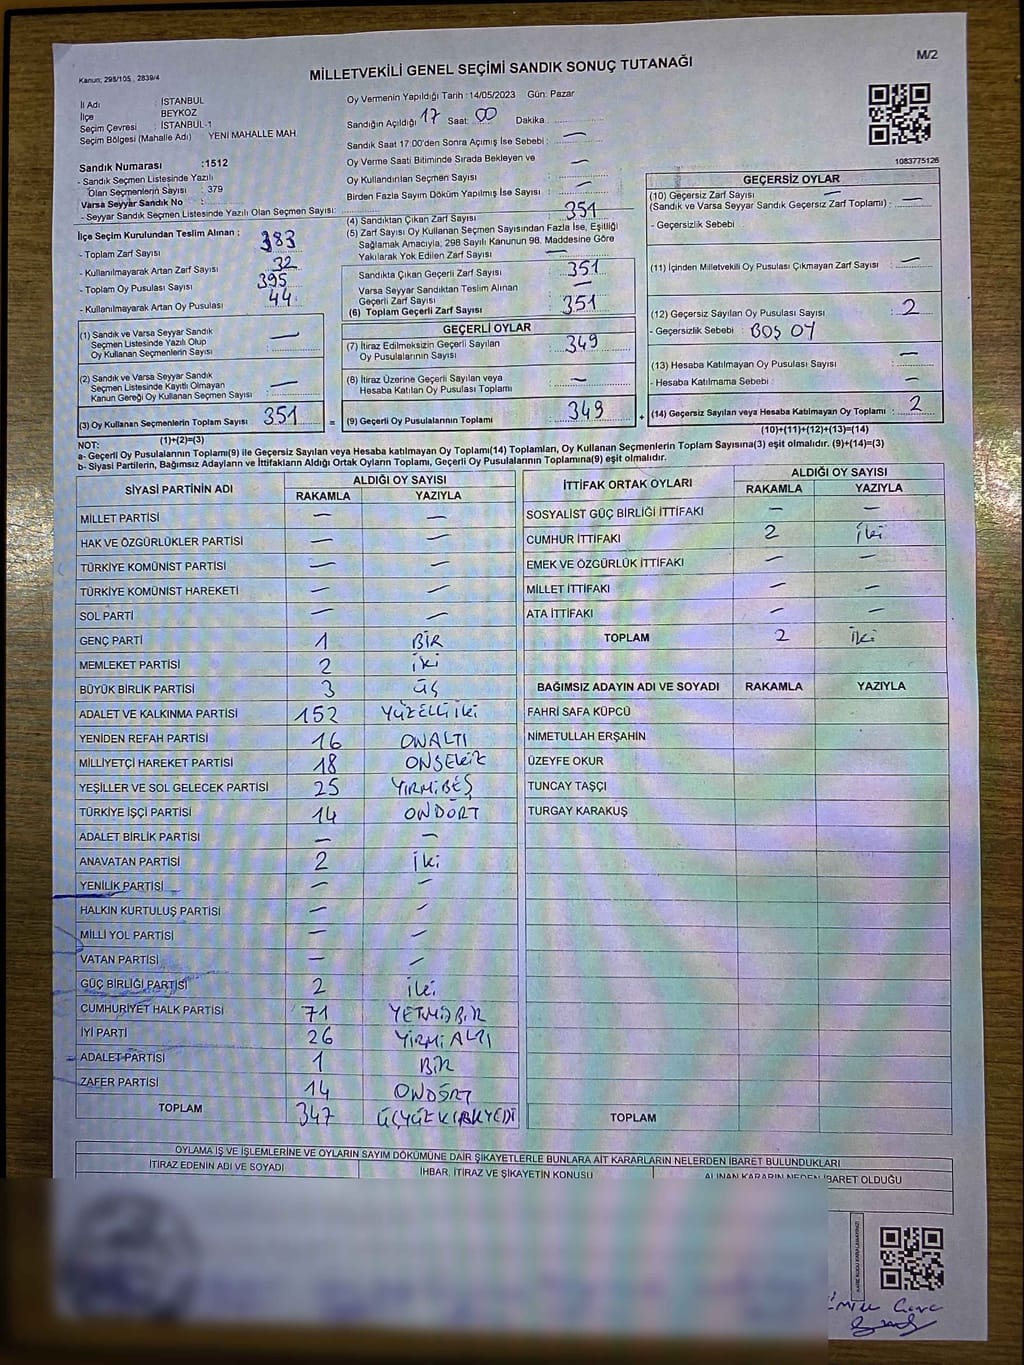 M/2
Kanun; 298/105 , 2839/4
MİLLETVEKİLİ GENEL SEÇİMİ SANDIK SONUÇ TUTANAĞI
İl Adı : İSTANBUL
İlçe : BEYKOZ
Seçim Çevresi : İSTANBUL-1
Seçim Bölgesi (Mahalle Adı) YENİ MAHALLE MAH.
Sandık Numarası :1512
- Sandık Seçmen Listesinde Yazılı
Olan Seçmenlerin Sayısı : 379
Varsa Seyyar Sandık No :
- Seyyar Sandık Seçmen Listesinde Yazılı Olan Seçmen Sayısı:
Oy Vermenin Yapıldığı Tarih :14/05/2023 Gün: Pazar
Sandığın Açıldığı 17 Saat: 00 Dakika
Sandık Saat 17:00'den Sonra Açımış İse Sebebi : —
Oy Verme Saati Bitiminde Sırada Bekleyen ve
Oy Kullandırılan Seçmen Sayısı : —
Birden Fazla Sayım Döküm Yapılmış İse Sayısı : —
1083775126
İlçe Seçim Kurulundan Teslim Alınan :
- Toplam Zarf Sayısı : 383
- Kullanılmayarak Artan Zarf Sayısı : 32
- Toplam Oy Pusulası Sayısı : 395
- Kullanılmayarak Artan Oy Pusulası : 44
(1) Sandık ve Varsa Seyyar Sandık
Seçmen Listesinde Yazılı Olup
Oy Kullanan Seçmenlerin Sayısı : —
(2) Sandık ve Varsa Seyyar Sandık
Seçmen Listesinde Kayıtlı Olmayan
Kanun Gereği Oy Kullanan Seçmen Sayısı : —
(3) Oy Kullanan Seçmenlerin Toplam Sayısı : 351
(1)+(2)=(3)
(4) Sandıktan Çıkan Zarf Sayısı : 351
(5) Zarf Sayısı Oy Kullanan Seçmen Sayısından Fazla İse, Eşitliği
Sağlamak Amacıyla; 298 Sayılı Kanunun 98. Maddesine Göre
Yakılarak Yok Edilen Zarf Sayısı : —
Sandıkta Çıkan Geçerli Zarf Sayısı : 351
Varsa Seyyar Sandıktan Teslim Alınan
Geçerli Zarf Sayısı : —
(6) Toplam Geçerli Zarf Sayısı : 351
GEÇERLİ OYLAR
(7) İtiraz Edilmeksizin Geçerli Sayılan
Oy Pusulalarının Sayısı : 349
(8) İtiraz Üzerine Geçerli Sayılan veya
Hesaba Katılan Oy Pusulası Toplamı : —
= (9) Geçerli Oy Pusulalarının Toplamı : 349 +
GEÇERSİZ OYLAR
(10) Geçersiz Zarf Sayısı
(Sandık ve Varsa Seyyar Sandık Geçersiz Zarf Toplamı) : —
- Geçersizlik Sebebi :
(11) İçinden Milletvekili Oy Pusulası Çıkmayan Zarf Sayısı : —
(12) Geçersiz Sayılan Oy Pusulası Sayısı : 2
- Geçersizlik Sebebi : BOŞ OY
(13) Hesaba Katılmayan Oy Pusulası Sayısı : —
- Hesaba Katılmama Sebebi : —
(14) Geçersiz Sayılan veya Hesaba Katılmayan Oy Toplamı : 2
(10)+(11)+(12)+(13)=(14)
NOT:
a- Geçerli Oy Pusulalarının Toplamı(9) ile Geçersiz Sayılan veya Hesaba katılmayan Oy Toplamı(14) Toplamları, Oy Kullanan Seçmenlerin Toplam Sayısına(3) eşit olmalıdır. (9)+(14)=(3)
b- Siyasi Partilerin, Bağımsız Adayların ve İttifakların Aldığı Ortak Oyların Toplamı, Geçerli Oy Pusulalarının Toplamına(9) eşit olmalıdır.
SİYASİ PARTİNİN ADI ALDIĞI OY SAYISI
RAKAMLA YAZIYLA
MİLLET PARTİSİ — —
HAK VE ÖZGÜRLÜKLER PARTİSİ — —
TÜRKİYE KOMÜNİST PARTİSİ — —
TÜRKİYE KOMÜNİST HAREKETİ — —
SOL PARTİ — —
GENÇ PARTİ 1 BİR
MEMLEKET PARTİSİ 2 iki
BÜYÜK BİRLİK PARTİSİ 3 üş
ADALET VE KALKINMA PARTİSİ 152 YÜZELLİ iki
YENİDEN REFAH PARTİSİ 16 ONALTI
MİLLİYETÇİ HAREKET PARTİSİ 18 ONSEKİZ
YEŞİLLER VE SOL GELECEK PARTİSİ 25 YIRMİBEŞ
TÜRKİYE İŞÇİ PARTİSİ 14 ONDÖRT
ADALET BİRLİK PARTİSİ — —
ANAVATAN PARTİSİ 2 iki
YENİLİK PARTİSİ — —
HALKIN KURTULUŞ PARTİSİ — —
MİLLİ YOL PARTİSİ — —
VATAN PARTİSİ — —
GÜÇ BİRLİĞİ PARTİSİ 2 iki
CUMHURİYET HALK PARTİSİ 71 YETMİŞBİR
İYİ PARTİ 26 YİRMİ ALTI
ADALET PARTİSİ 1 BİR
ZAFER PARTİSİ 14 ONDÖRT
TOPLAM 347 ÜÇYÜZKIRKYEDİ
İTTİFAK ORTAK OYLARI ALDIĞI OY SAYISI
RAKAMLA YAZIYLA
SOSYALİST GÜÇ BİRLİĞİ İTTİFAKI — —
CUMHUR İTTİFAKI 2 iki
EMEK VE ÖZGÜRLÜK İTTİFAKI — —
MİLLET İTTİFAKI — —
ATA İTTİFAKI — —
TOPLAM 2 iki
BAĞIMSIZ ADAYIN ADI VE SOYADI RAKAMLA YAZIYLA
FAHRİ SAFA KÜPCÜ
NİMETULLAH ERŞAHİN
ÜZEYFE OKUR
TUNCAY TAŞÇI
TURGAY KARAKUŞ
TOPLAM
OYLAMA İŞ VE İŞLEMLERİNE VE OYLARIN SAYIM DÖKÜMÜNE DAİR ŞİKAYETLERLE BUNLARA AİT KARARLARIN NELERDEN İBARET BULUNDUKLARI
İTİRAZ EDENİN ADI VE SOYADI İHBAR, İTİRAZ VE ŞİKAYETİN KONUSU ALINAN KARARIN NEDEN İBARET OLDUĞU